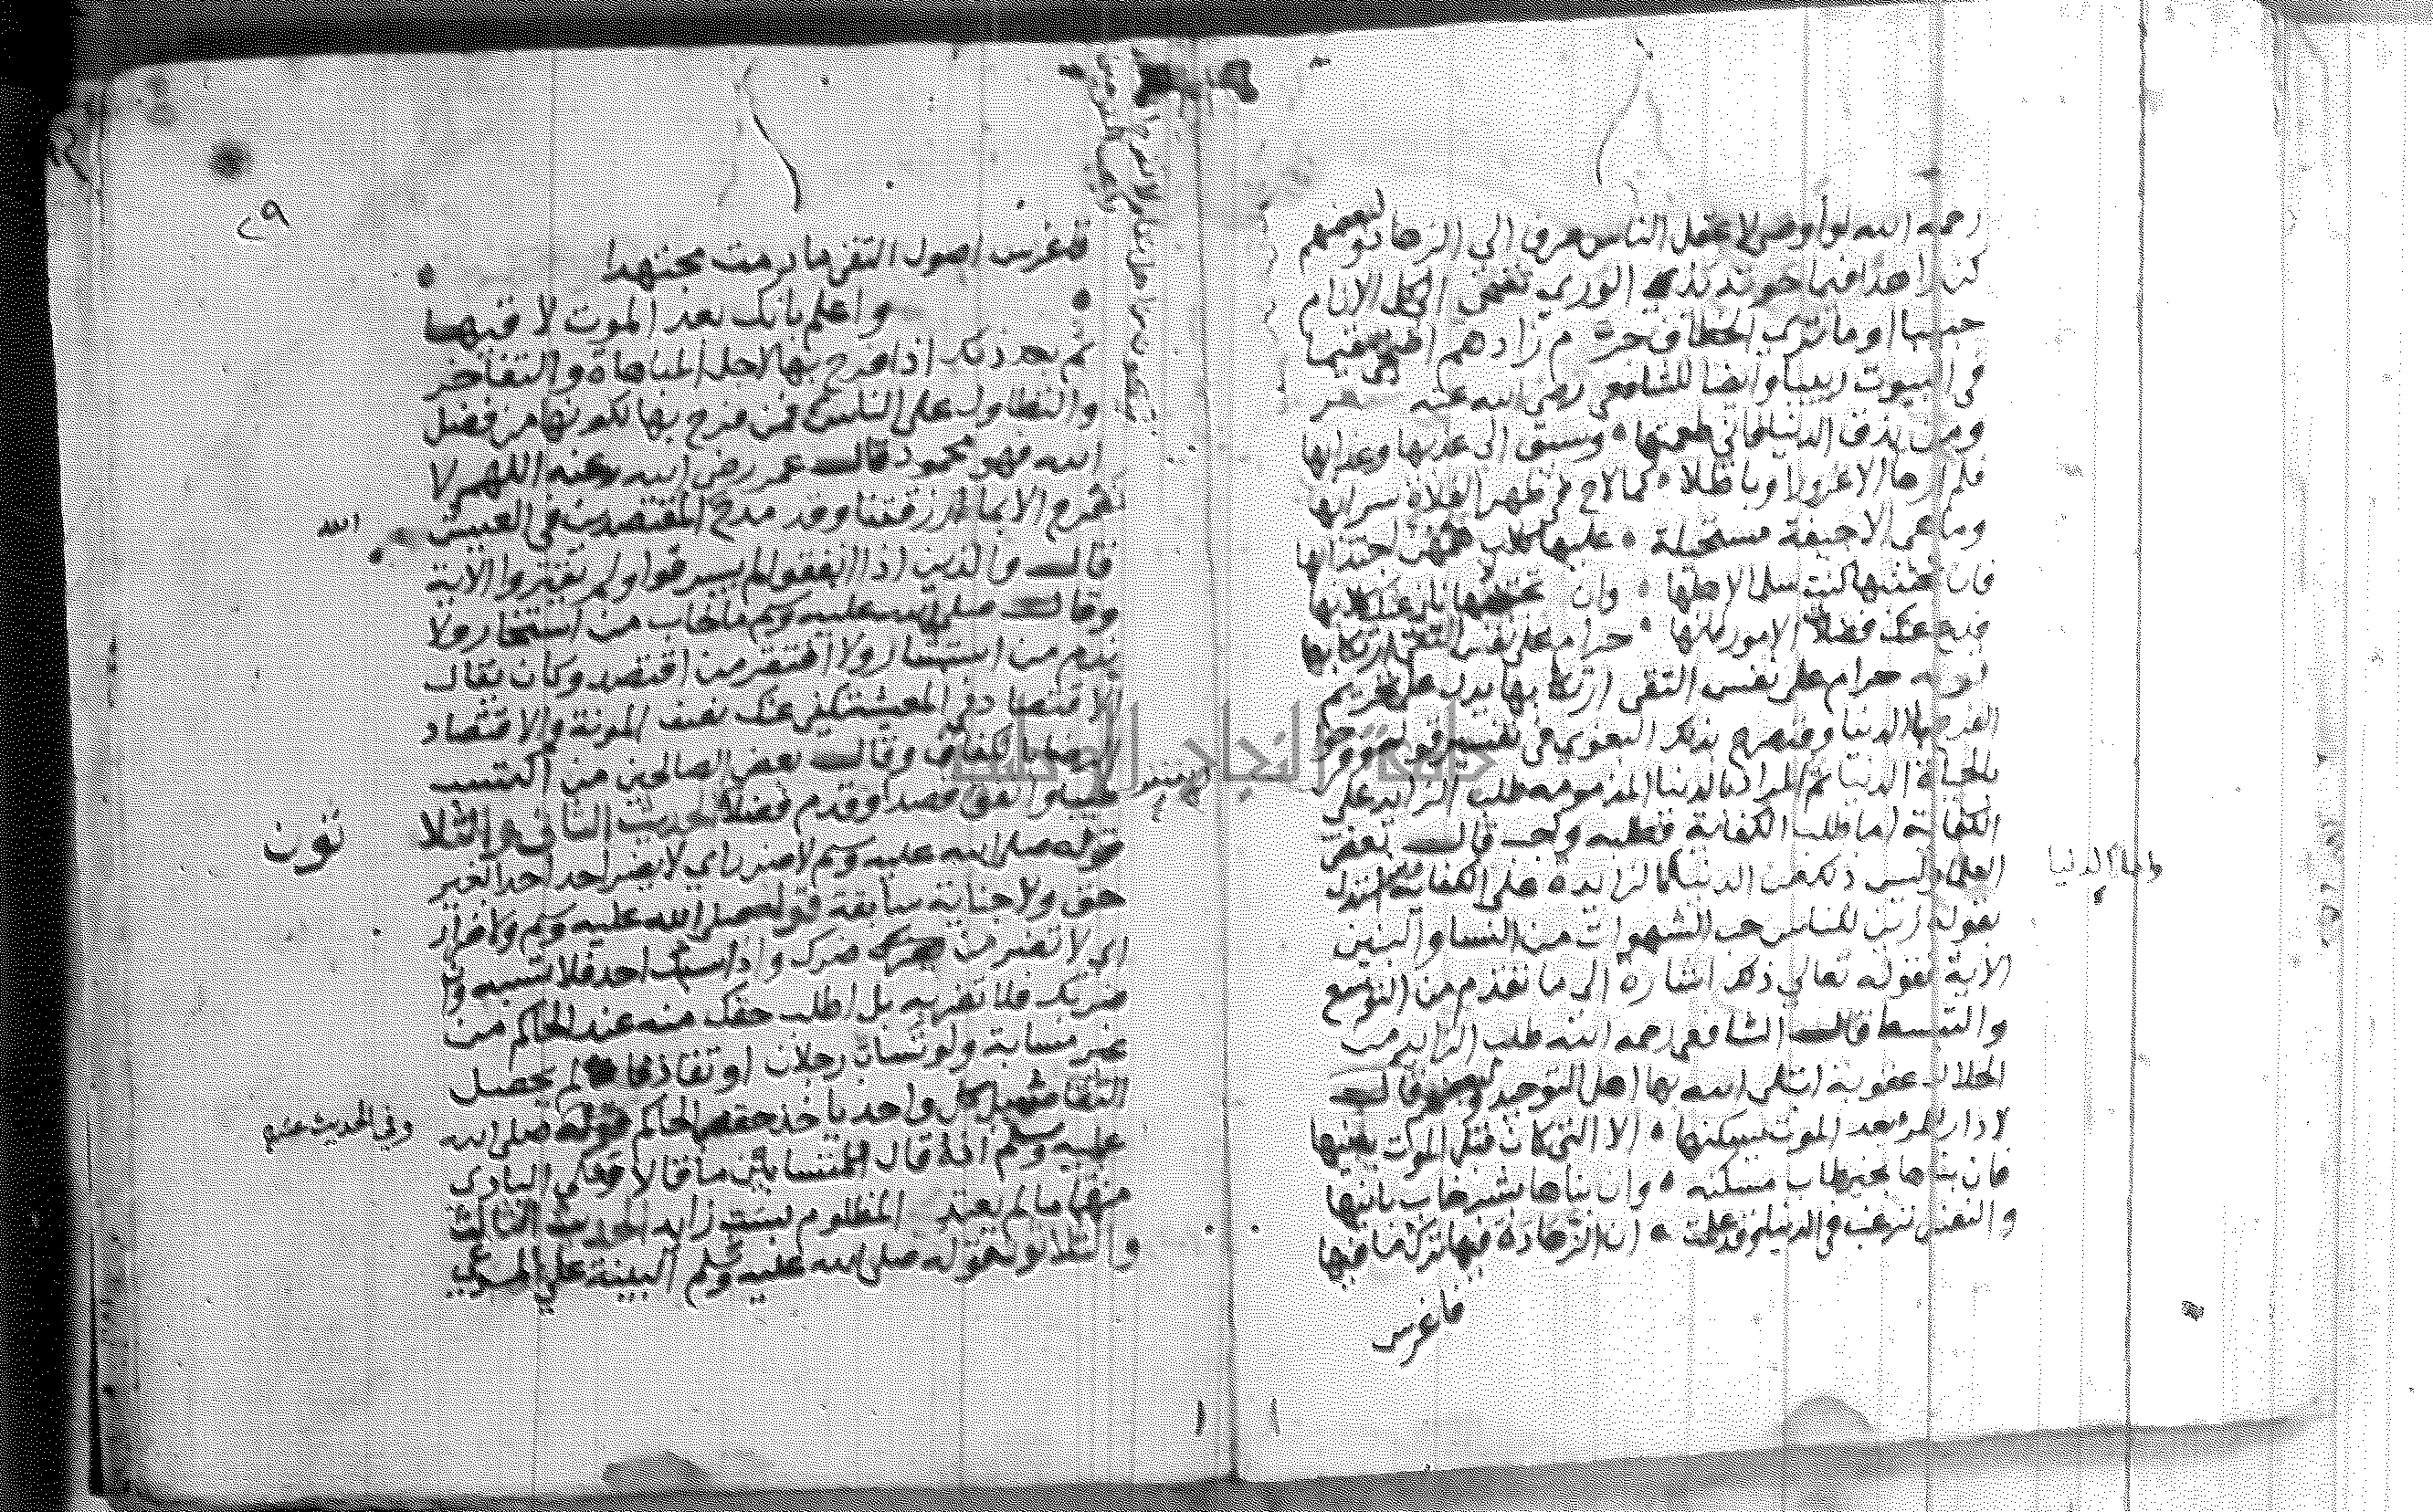 رحمه الله لو أوصى لاعقل الناس صرف الى الزهاد ولبعضهم
كن زاهدا فيما حوته يد الورى تضحى الى كل الانام
حبيبا او ما ترى الخطاف حرم زادهم اضحى مقيما
في البيوت ربيبا وايضا للشافعي رضي الله عنه شعر
ومن يذق الدنيا فاني طعمتها وسيق الى عذبها وعذابها
فلم ارها الا غرورا وباطلا كما لاح في ظهر الفلاة سرابها
وما هي الا جيفة مستحيلة عليها كلاب همهن اجتذابها
فان تجتنبها كنت سلما لاهلها وان تجتذبها نازعتك كلابها
فدع عنك فضلات الامور فانها حرام على نفس التقي ارتكابها
قوله حرام على نفس التقي ارتكابها يدل على تحريم
الفرح بالدنيا وقد صرح بذلك البغوي في تفسير قوله وفرحوا
بالحياة الدنيا ثم المراد بالدنيا المذمومة طلب الزايد على
الكفاية اما طلب الكفاية فطلبه واجب قال بعض
العلماء وليس ذلك من الدنيا واما الدنيا فالزايدة على الكفاية واستدل
بقوله زين للناس حب الشهوات من النسا والبنين
الاية فقوله تعالى ذلك اشارة الى ما تقدم من التوسع
والتبسط قال الشافعي رحمه الله طلب الزايد من
الحلال عقوبة ابتلى الله بها اهل التوحيد ولبعضهم قال
لا دار للمرء بعد الموت يسكنها الا التي كان قبل الموت يبنيها
فان بناها بخير طاب مسكنه وان بناها بشر خاب بانيها
والنفس ترغب في الدنيا وقد علمت ان الزهادة فيها ترك ما فيها
فاغرس
واما الدنيا
٢٩
فاغرس اصول التقى ما دمت مجتهدا
واعلم بانك بعد الموت لاقيها
ثم بعد ذلك اذا فرح بها لاجل المباهاة والتفاخر
والتطاول على الناس فمن فرح بها لكونها من فضل
الله فهو محمود قال عمر رضي الله عنه اللهم لا
نفرح الا بما رزقتنا وقد مدح الله المقتصدين في العيش
قال والذين اذا انفقوا لم يسرفوا ولم يقتروا الاية
وقال صلى الله عليه وسلم ما خاب من استخار ولا
ندم من استشار ولا افتقر من اقتصد وكان يقال
الاقتصاد في المعيشة يكفي عنك نصف المونة والاقتصاد
الرضا بالكفاف وقال بعض الصالحين من اكتسب
طيبا وانفق قصدا وقدم فضلا الحديث الثاني والثلاثون
قوله صلى الله عليه وسلم لا ضرر اي لا يضر احد احدا بغير
حق ولا جناية سابقة قوله صلى الله عليه وسلم ولا ضرار
اي لا تضر من ضرك واذا سبك احد فلا تسبه وان
ضربك فلا تضربه بل اطلب حقك منه عند الحاكم من
غير مسابة ولو تساب رجلان او تقاذفا لم يحصل
التقاص بل كل واحد ياخذ حقه للحاكم وفي الحديث عنه صلى الله
عليه وسلم انه قال للمتسابين ما قالا فعلى البادي
منهما ما لم يعتد المظلوم بسب زايد الحديث الثالث
والثلاثون قوله صلى الله عليه وسلم البينة على المدعي
جامعة النجاح الوطنية